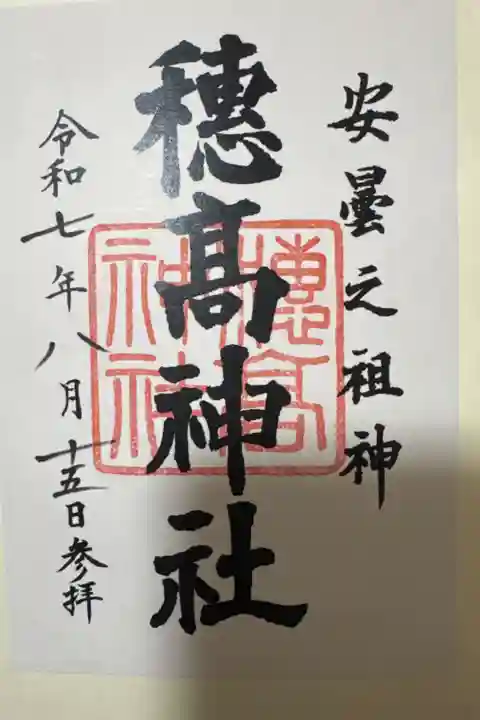 安曇之祖神
穗髙神社
穗高神社
令和七年八月十五日参拝